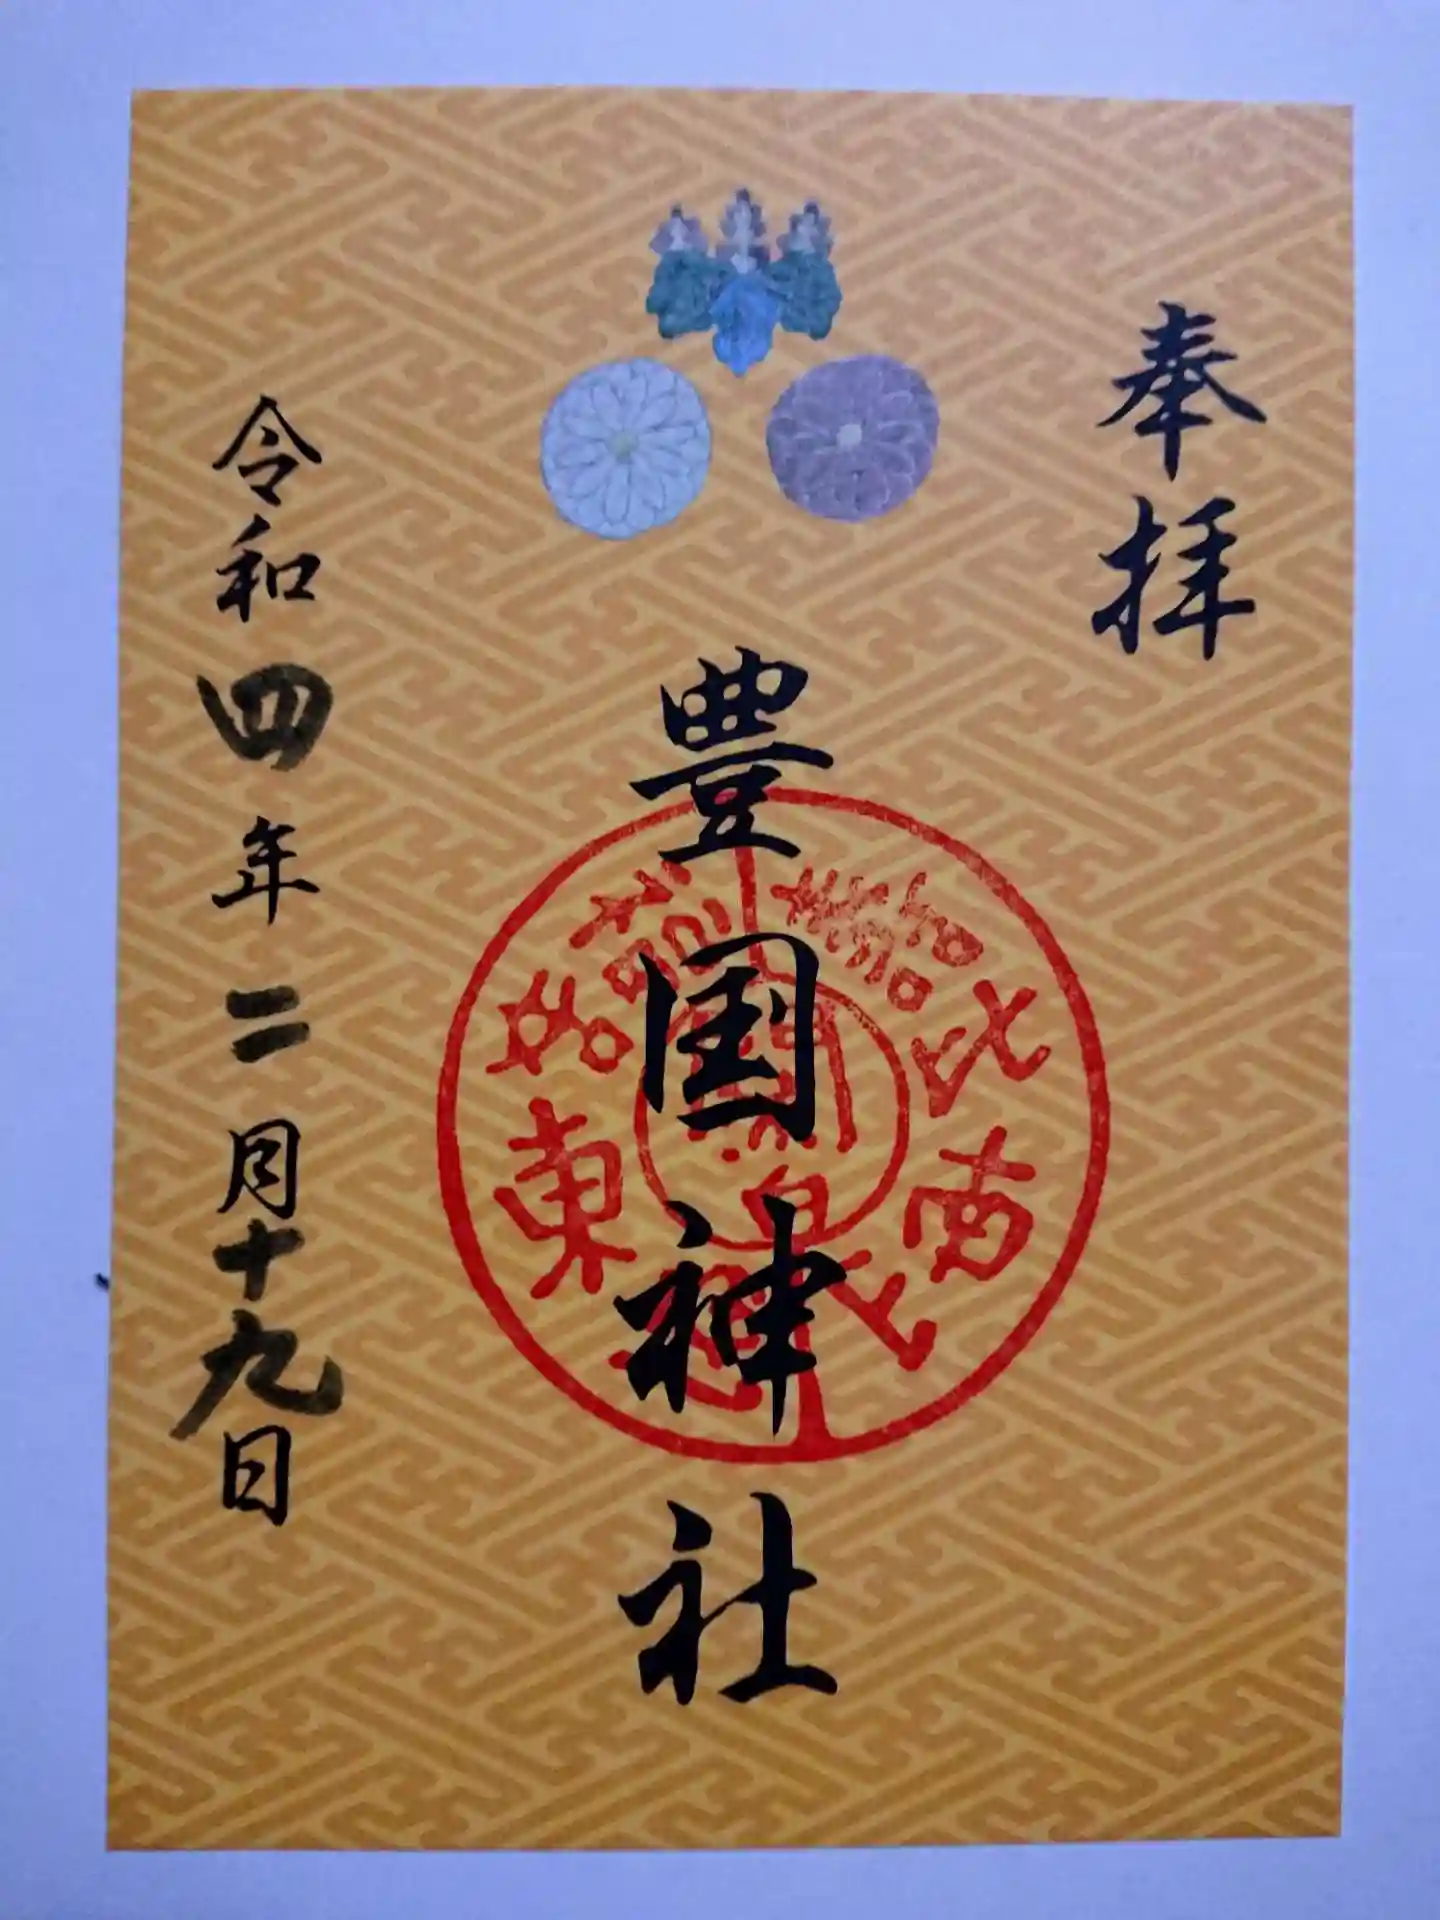 奉拝
豊国神社
令和四年二月十九日